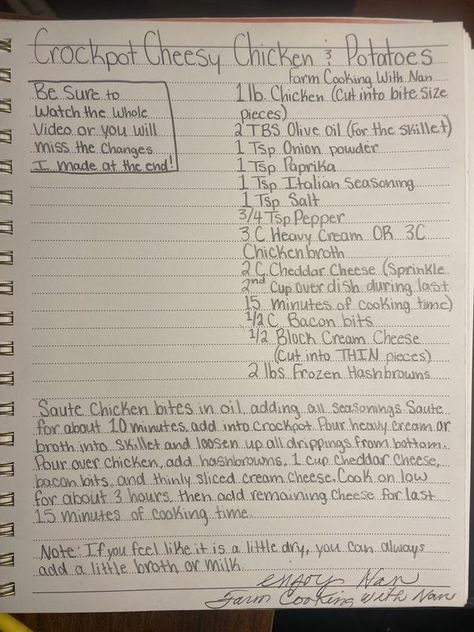 Crockpot Cheesy Chicken & Potatoes
Farm Cooking With Nan
Be Sure to
Watch the Whole
Video or you will
miss the Changes
I made at the end!
1 lb Chicken (Cut into bite size
pieces)
2 TBS Olive oil (for the skillet)
1 Tsp Onion powder
1 Tsp Paprika
1 Tsp Italian Seasoning
1 Tsp Salt
3/4 Tsp Pepper
3 C Heavy Cream OR 3C
Chicken broth
2 C Cheddar Cheese (Sprinkle
2nd Cup over dish during last
15 minutes of cooking time)
1/2 C Bacon bits
1/2 Block Cream Cheese
(Cut into THIN pieces)
2 lbs Frozen Hashbrowns
Saute Chicken bites in oil, adding all seasonings. Saute
for about 10 minutes, add into Crockpot. Pour heavy cream or
broth into skillet and loosen up all drippings from bottom.
Pour over chicken, add hashbrowns, 1 cup Cheddar Cheese,
bacon bits, and thinly sliced cream cheese. Cook on low
for about 3 hours, then add remaining cheese for last
15 minutes of cooking time.
Note: If you feel like it is a little dry, you can always
add a little broth or milk.
enjoy Nan
Farm Cooking With Nan